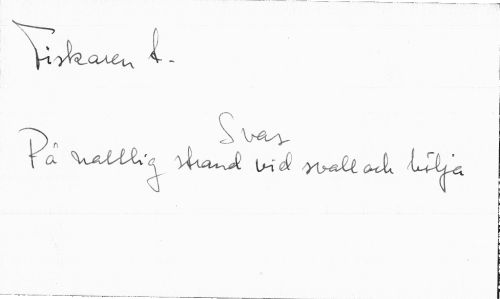 Fiskaren t.
Svas
På nattlig strand vid svall och bölja